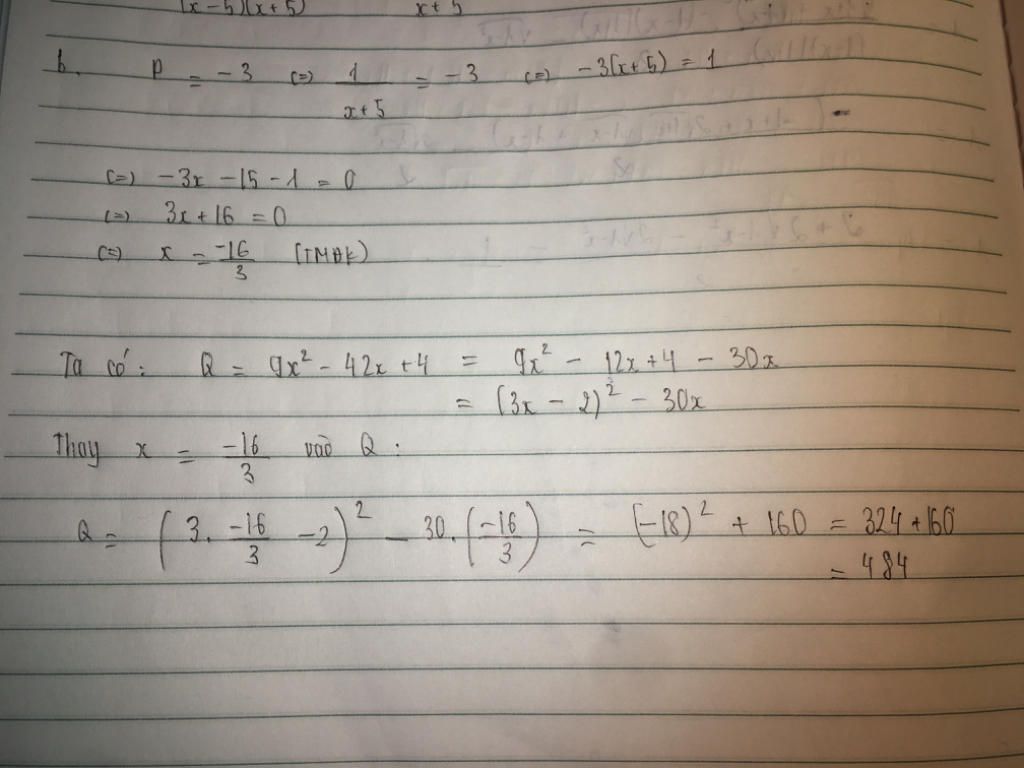 (x-5)(x+5) x+5
b. P = -3 (=) 1/(x+5) = -3 (=) -3(x+5) = 1
(=) -3x -15 -1 = 0
(=) 3x + 16 = 0
(=) x = -16/3 (TMĐK)
Ta có: Q = 9x² - 42x + 4 = 9x² - 12x + 4 - 30x
= (3x - 2)² - 30x
Thay x = -16/3 vào Q:
Q = (3. -16/3 -2)² - 30. (-16/3) = (-18)² + 160 = 324 + 160
= 484